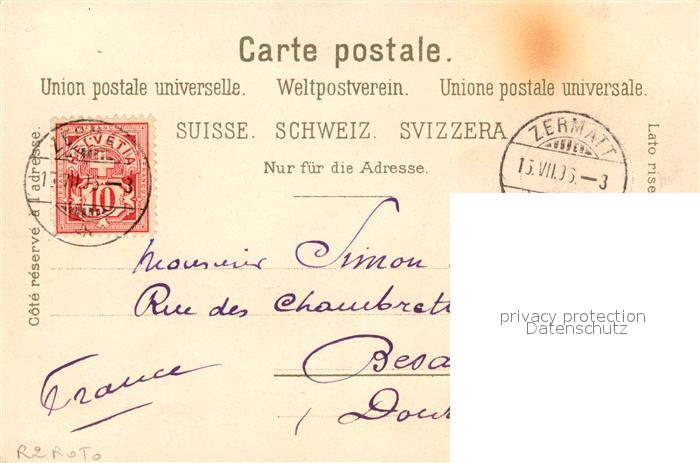 Carte postale.
Union postale universelle. Weltpostverein. Unione postale universale.
SUISSE. SCHWEIZ. SVIZZERA
Nur für die Adresse.
Côté réservé à l'adresse.
Lato rise
HELVETIA
10
ZERMATT
15.VII.05.—3
Monsieur Simon
Rue des Chambrett
Besa
Dour
France
privacy protection
Datenschutz
R2 ROTO